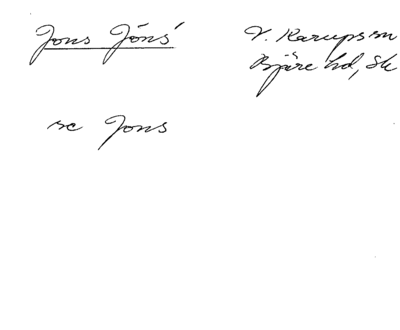 Jons Jöns'
V. Karups sn
Bjäre hd, Sk
se Jons